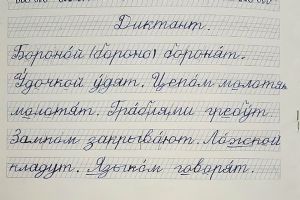 Диктант.
Бороной (бороно) боронят.
Удочкой удят. Цепом молотян
молотят. Граблями гребут.
Замком закрывают. Ложкой
кладут. Языком говорят.